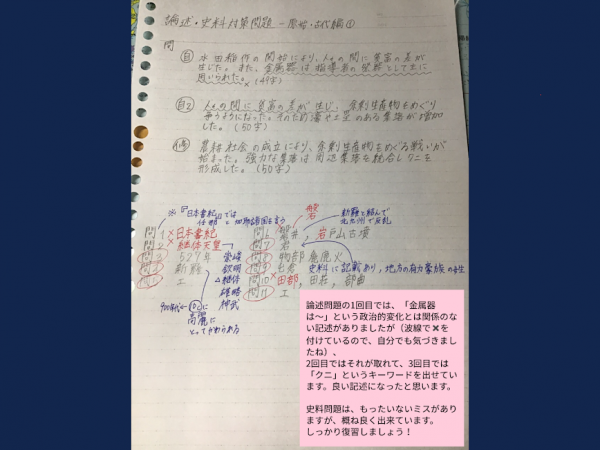 論述・史料対策問題 ー原始・古代編①
問
自 水田稲作の開始により、人々の間に貧富の差が
生じた。また、金属器は指導者の
用いられた。 (49字)
自2 人々の間に貧富の差が生じ、余剰生産物をめぐり
争うようになった。そのため濠や土塁のある集落が増加
した。 (50字)
農耕社会の成立により、余剰生産物をめぐる戦いが
始まった。強力な集落は周辺集落を統合しクニを
形成した。 (50字)
※『日本書紀』では
任那と加耶諸国を言う
問1 × 日本書紀
問2 × 継体天皇
問3 527年
問4 新羅
問5 エ
欽明
継体
雄略
神武
900年代
高麗に
とってかわられる
磐
岩
新羅と結んで
北九州で反乱
問6 磐井 岩戸山古墳
問7 岩
問8 物部麁鹿火
問9 屯倉 史料に記載あり、地方の有力豪族の子
問10 × 田部、田荘、部曲
問11 エ
論述問題の1回目では、「金属器
は〜」という政治的変化とは関係のな
い記述がありましたが（波線で✖を
付けているので、自分でも気づきまし
たね）、
2回目ではそれが取れて、3回目では
「クニ」というキーワードを出せてい
ます。良い記述になったと思います。
史料問題は、もったいないミスがあり
ますが、概ね良く出来ています。
しっかり復習しましょう！